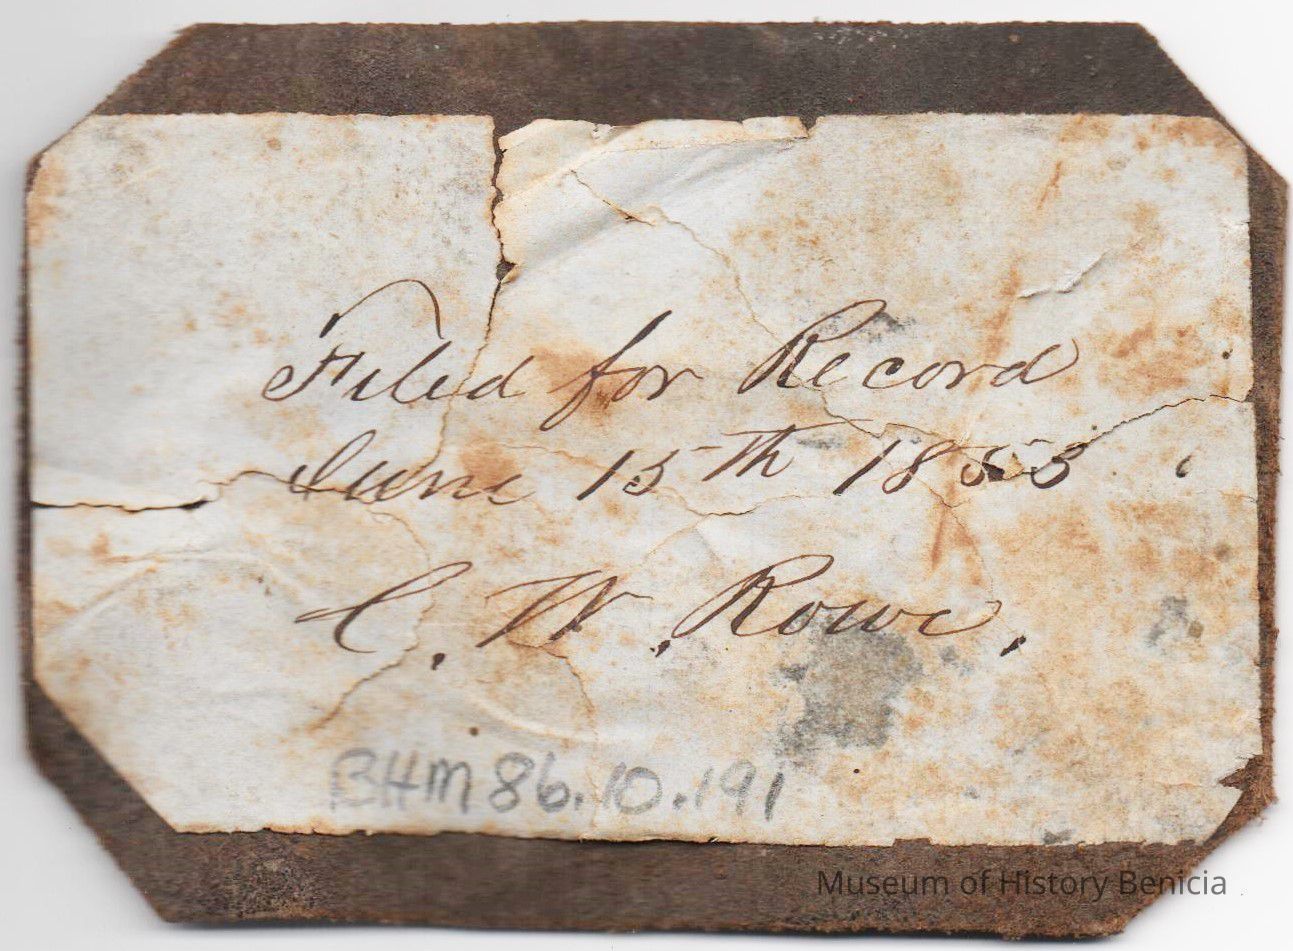 Filed for Record
June 15th 1855
C. W. Rowe.
BHM 86.10.191
Museum of History Benicia